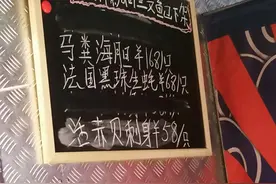 马粪海胆¥168/只
法国黑珠生蚝¥68/只
活赤贝刺身¥58/只